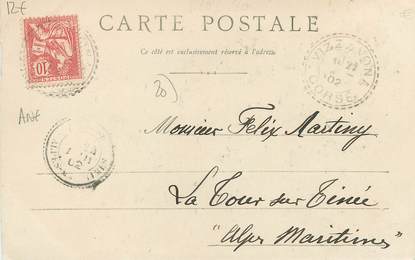 12€
CARTE POSTALE
Ce côté est exclusivement réservé à l'adresse.
10
VIZZAVONA
02
CORSE
20
Ant
Monsieur Felix Martiny
La Tour sur Tinée
"Alpes Maritimes"